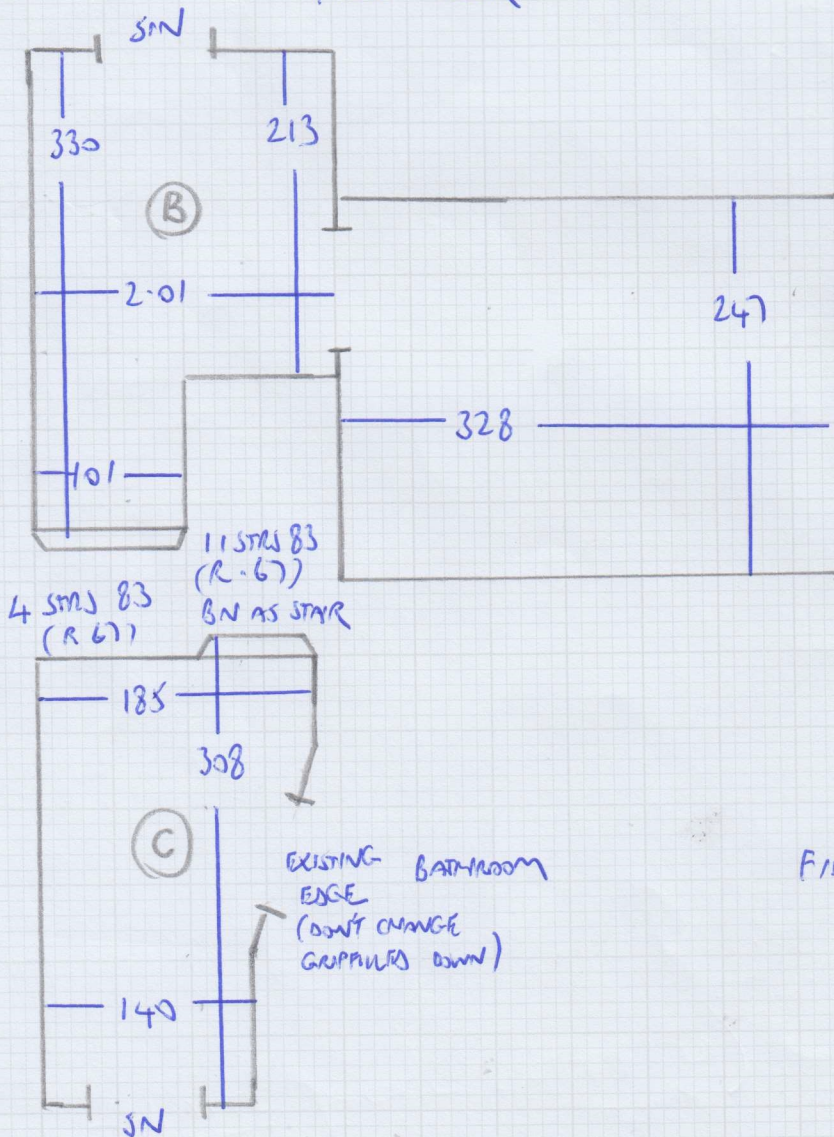 SN
330
213
B
2.01
247
328
101
11 STRS 83
(R.67)
BN AS STAR
4 STRS 83
(R 67)
185
308
C
EXISTING BATHROOM
EDGE
(DON'T CHANGE
DOWN)
140
SN